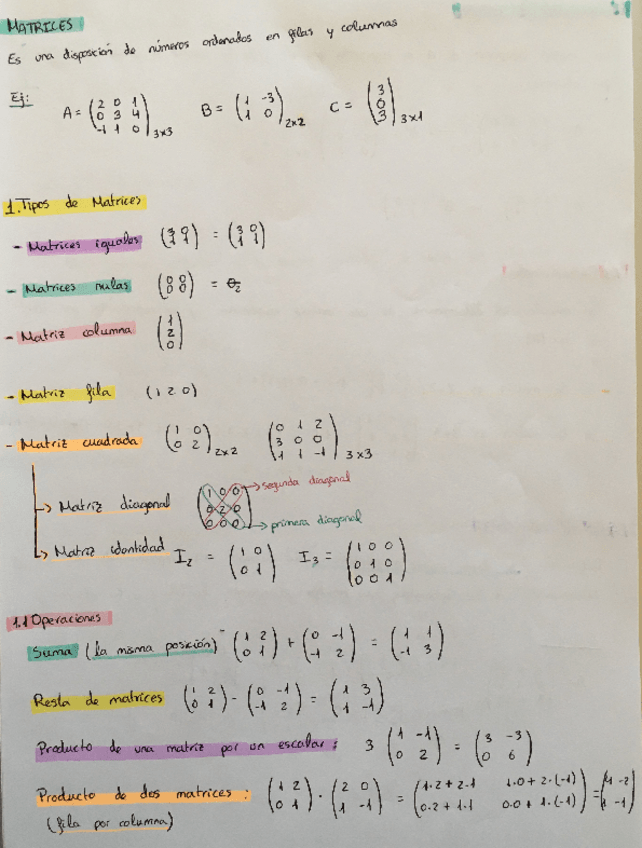 MATRICES
Es una disposición de números ordenados en filas y columnas
Ej:
A = (2 0 1
0 3 4
-1 1 0) 3x3 B = (1 -3
1 0) 2x2 C = (3
0
3) 3x1
1. Tipos de Matrices
- Matrices iguales (3 0
1 1) = (3 0
1 1)
- Matrices nulas (0 0
0 0) = 0₂
- Matriz columna (1
2
0)
- Matriz fila (1 2 0)
- Matriz cuadrada (1 0
0 2) 2x2 (0 1 2
3 0 0
1 1 -1) 3x3
↳ Matriz diagonal (1 0 0
0 2 0
0 0 0) → segunda diagonal
→ primera diagonal
↳ Matriz identidad I₂ = (1 0
0 1) I₃ = (1 0 0
0 1 0
0 0 1)
1.1 Operaciones
Suma (la misma posición) (1 2
0 1) + (0 -1
-1 2) = (1 1
-1 3)
Resta de matrices (1 2
0 1) - (0 -1
-1 2) = (1 3
1 -1)
Producto de una matriz por un escalar: 3 (1 -1
0 2) = (3 -3
0 6)
Producto de dos matrices: (1 2
0 1) · (2 0
1 -1) = (1·2+2·1 1·0+2·(-1)
0·2+1·1 0·0+1·(-1)) = (4 -2
1 -1)
(fila por columna)